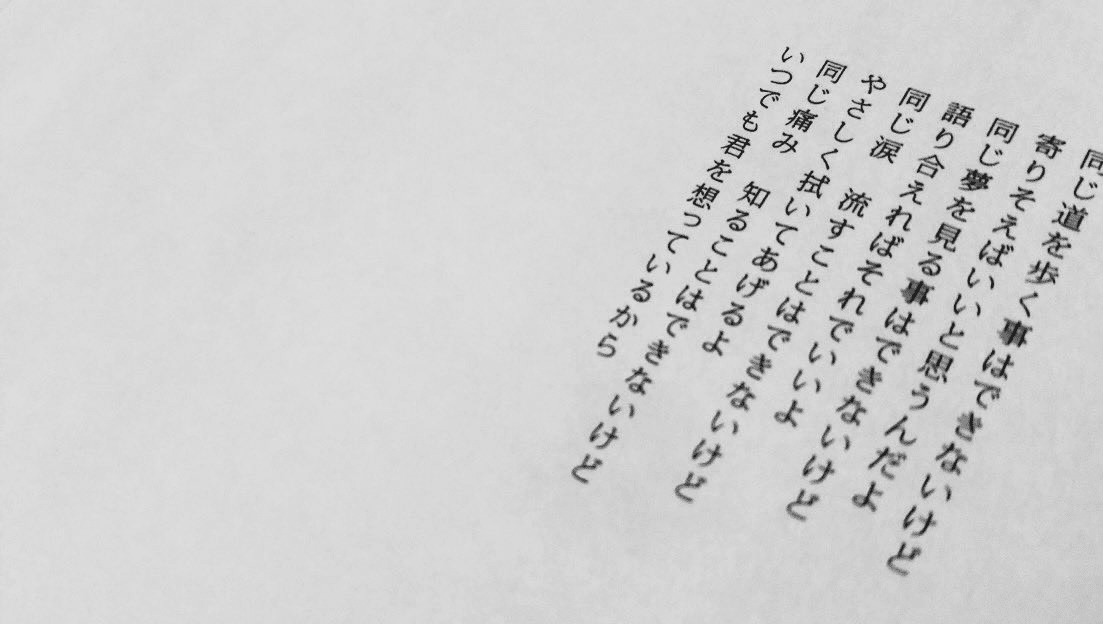 同じ道を歩く事はできないけど
寄りそえばいいと思うんだよ
同じ夢を見る事はできないけど
語り合えればそれでいいよ
同じ涙　流すことはできないけど
やさしく拭いてあげるよ
同じ痛み　知ることはできないけど
いつでも君を想っているから